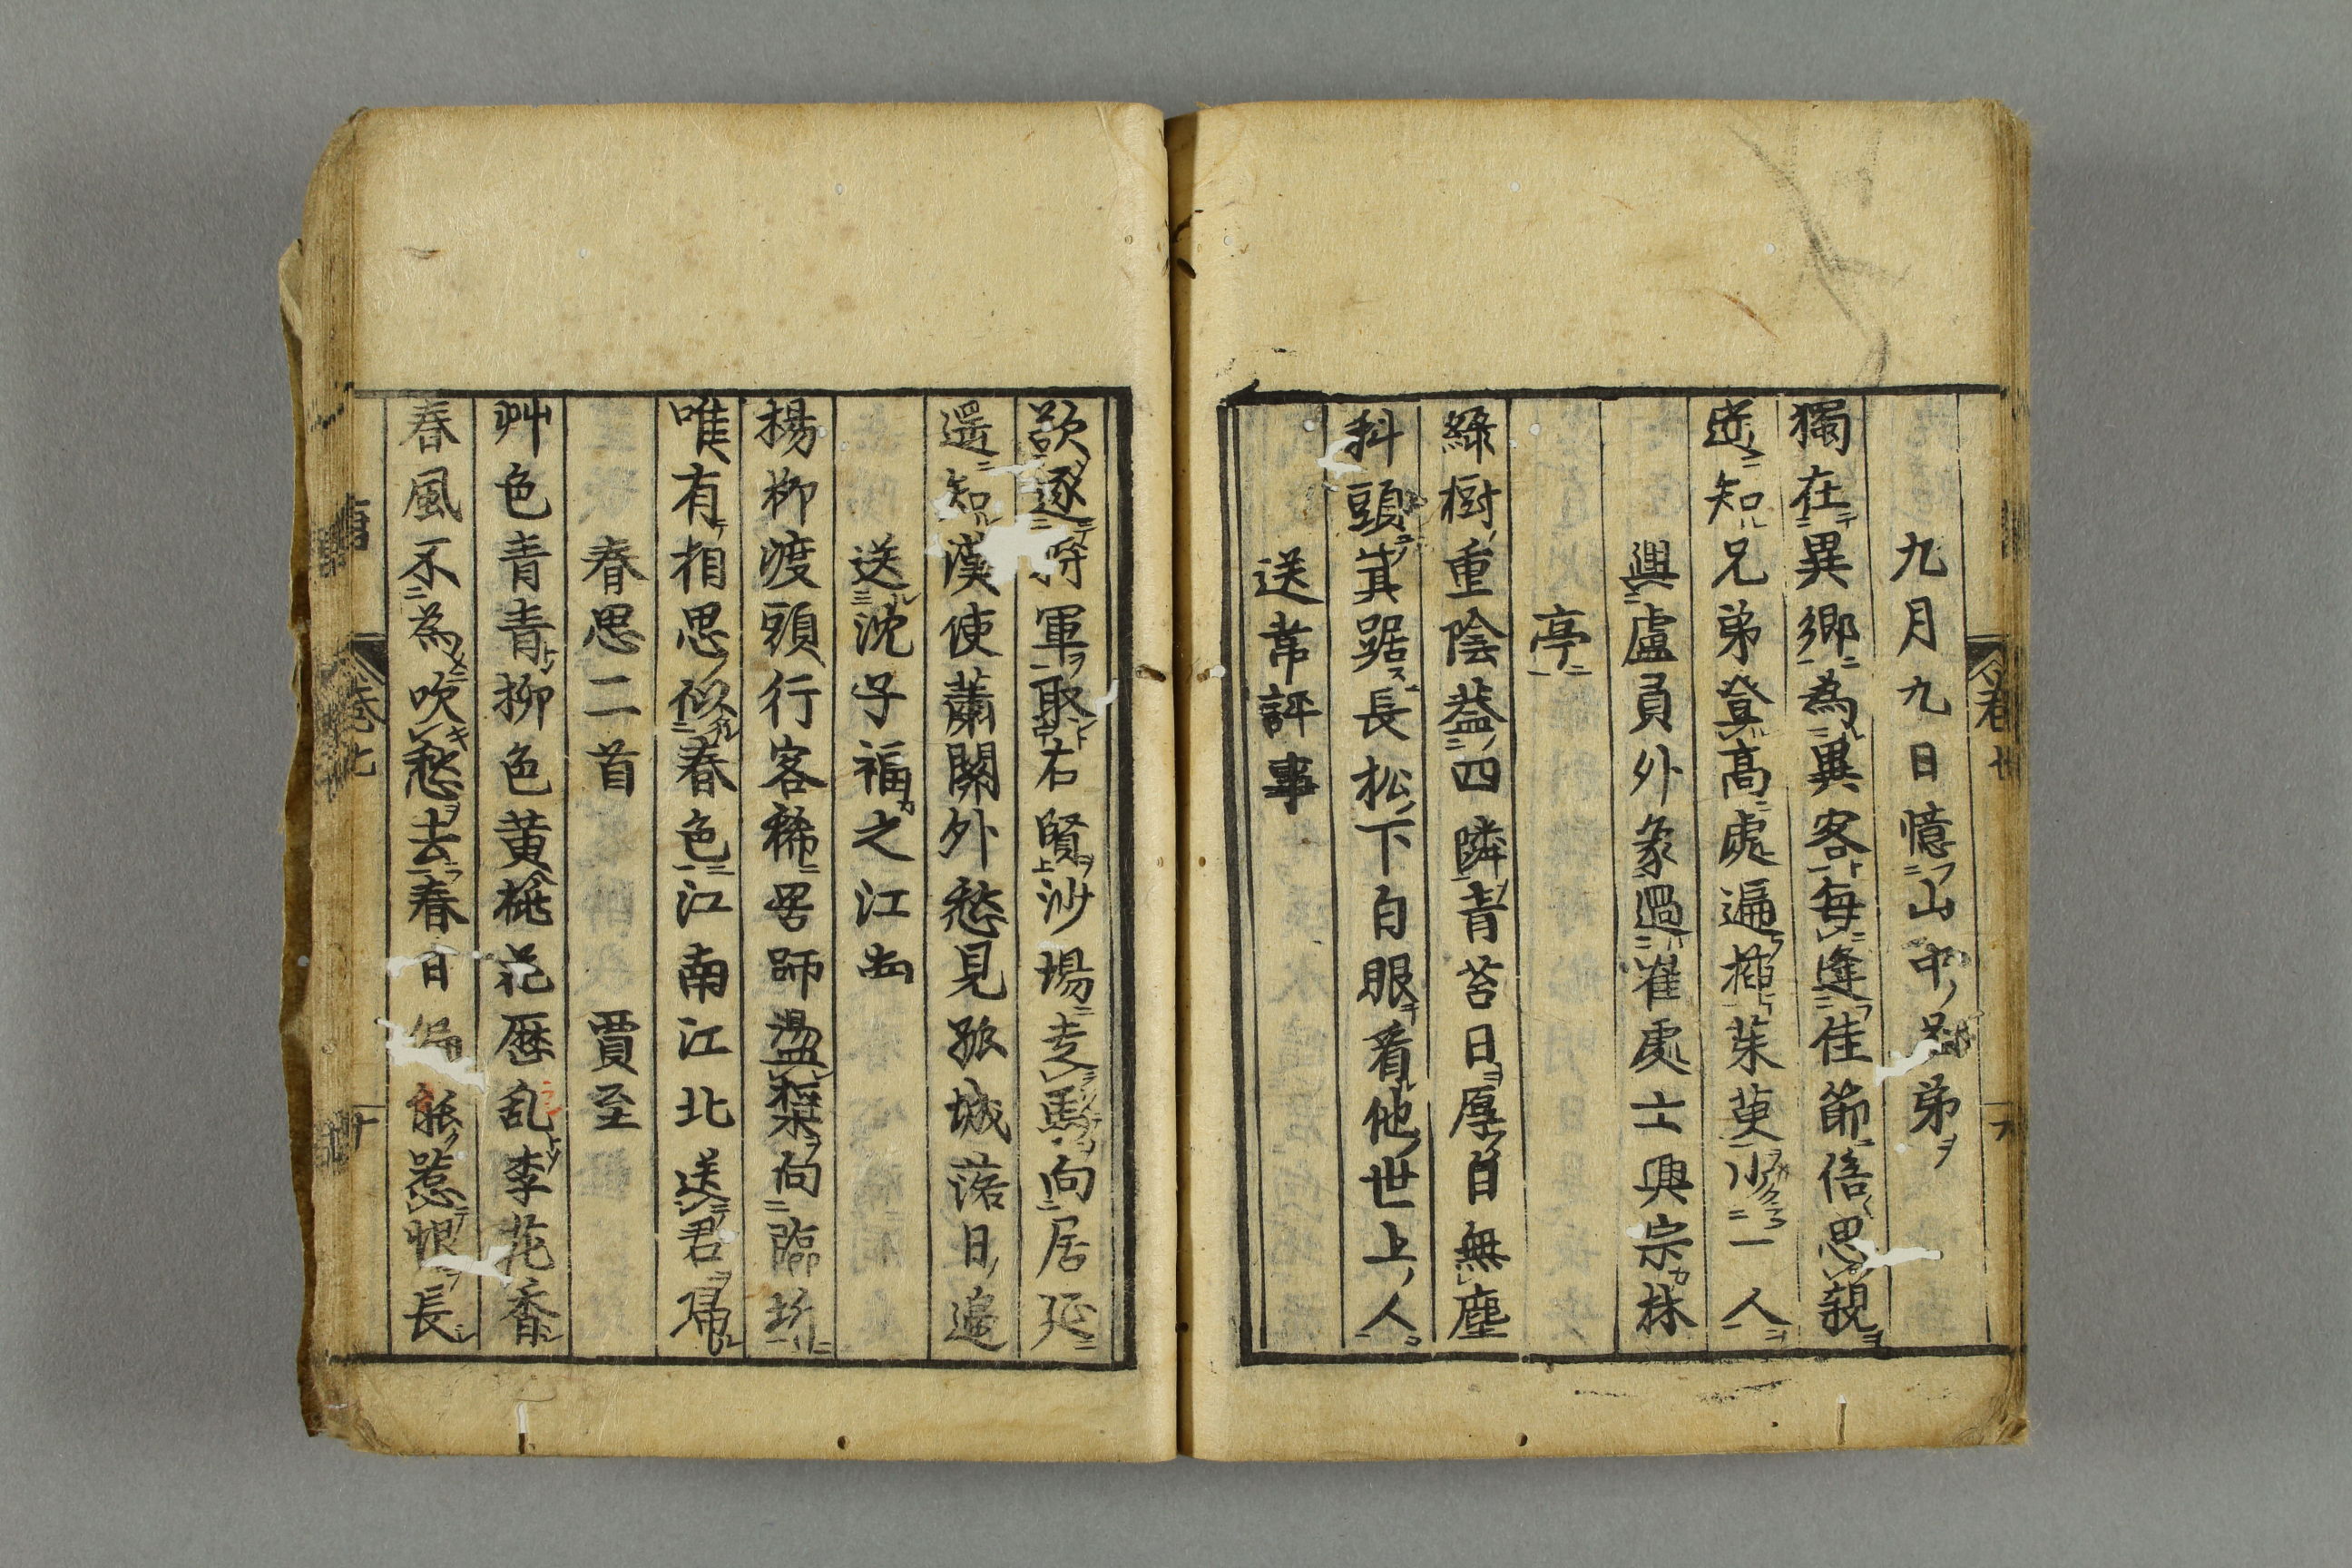 九月九日憶山中兄弟
獨在異鄉為異客每逢佳節倍思親
遥知兄弟登高處遍插茱萸少一人
與盧員外象過崔處士興宗林
亭
綠樹重陰蓋四隣青苔日厚自無塵
科頭箕踞長松下白眼看他世上人
送韋評事
欲逐將軍取右賢沙場走馬向居延
還知漢使蕭關外愁見孤城落日邉
送沈子福之江南
楊柳渡頭行客稀罟師盪槳向臨圻
唯有相思似春色江南江北送君歸
春思二首 賈至
艸色青青柳色黄桃花歴乱李花香
春風不為吹愁去春日偏能惹恨長